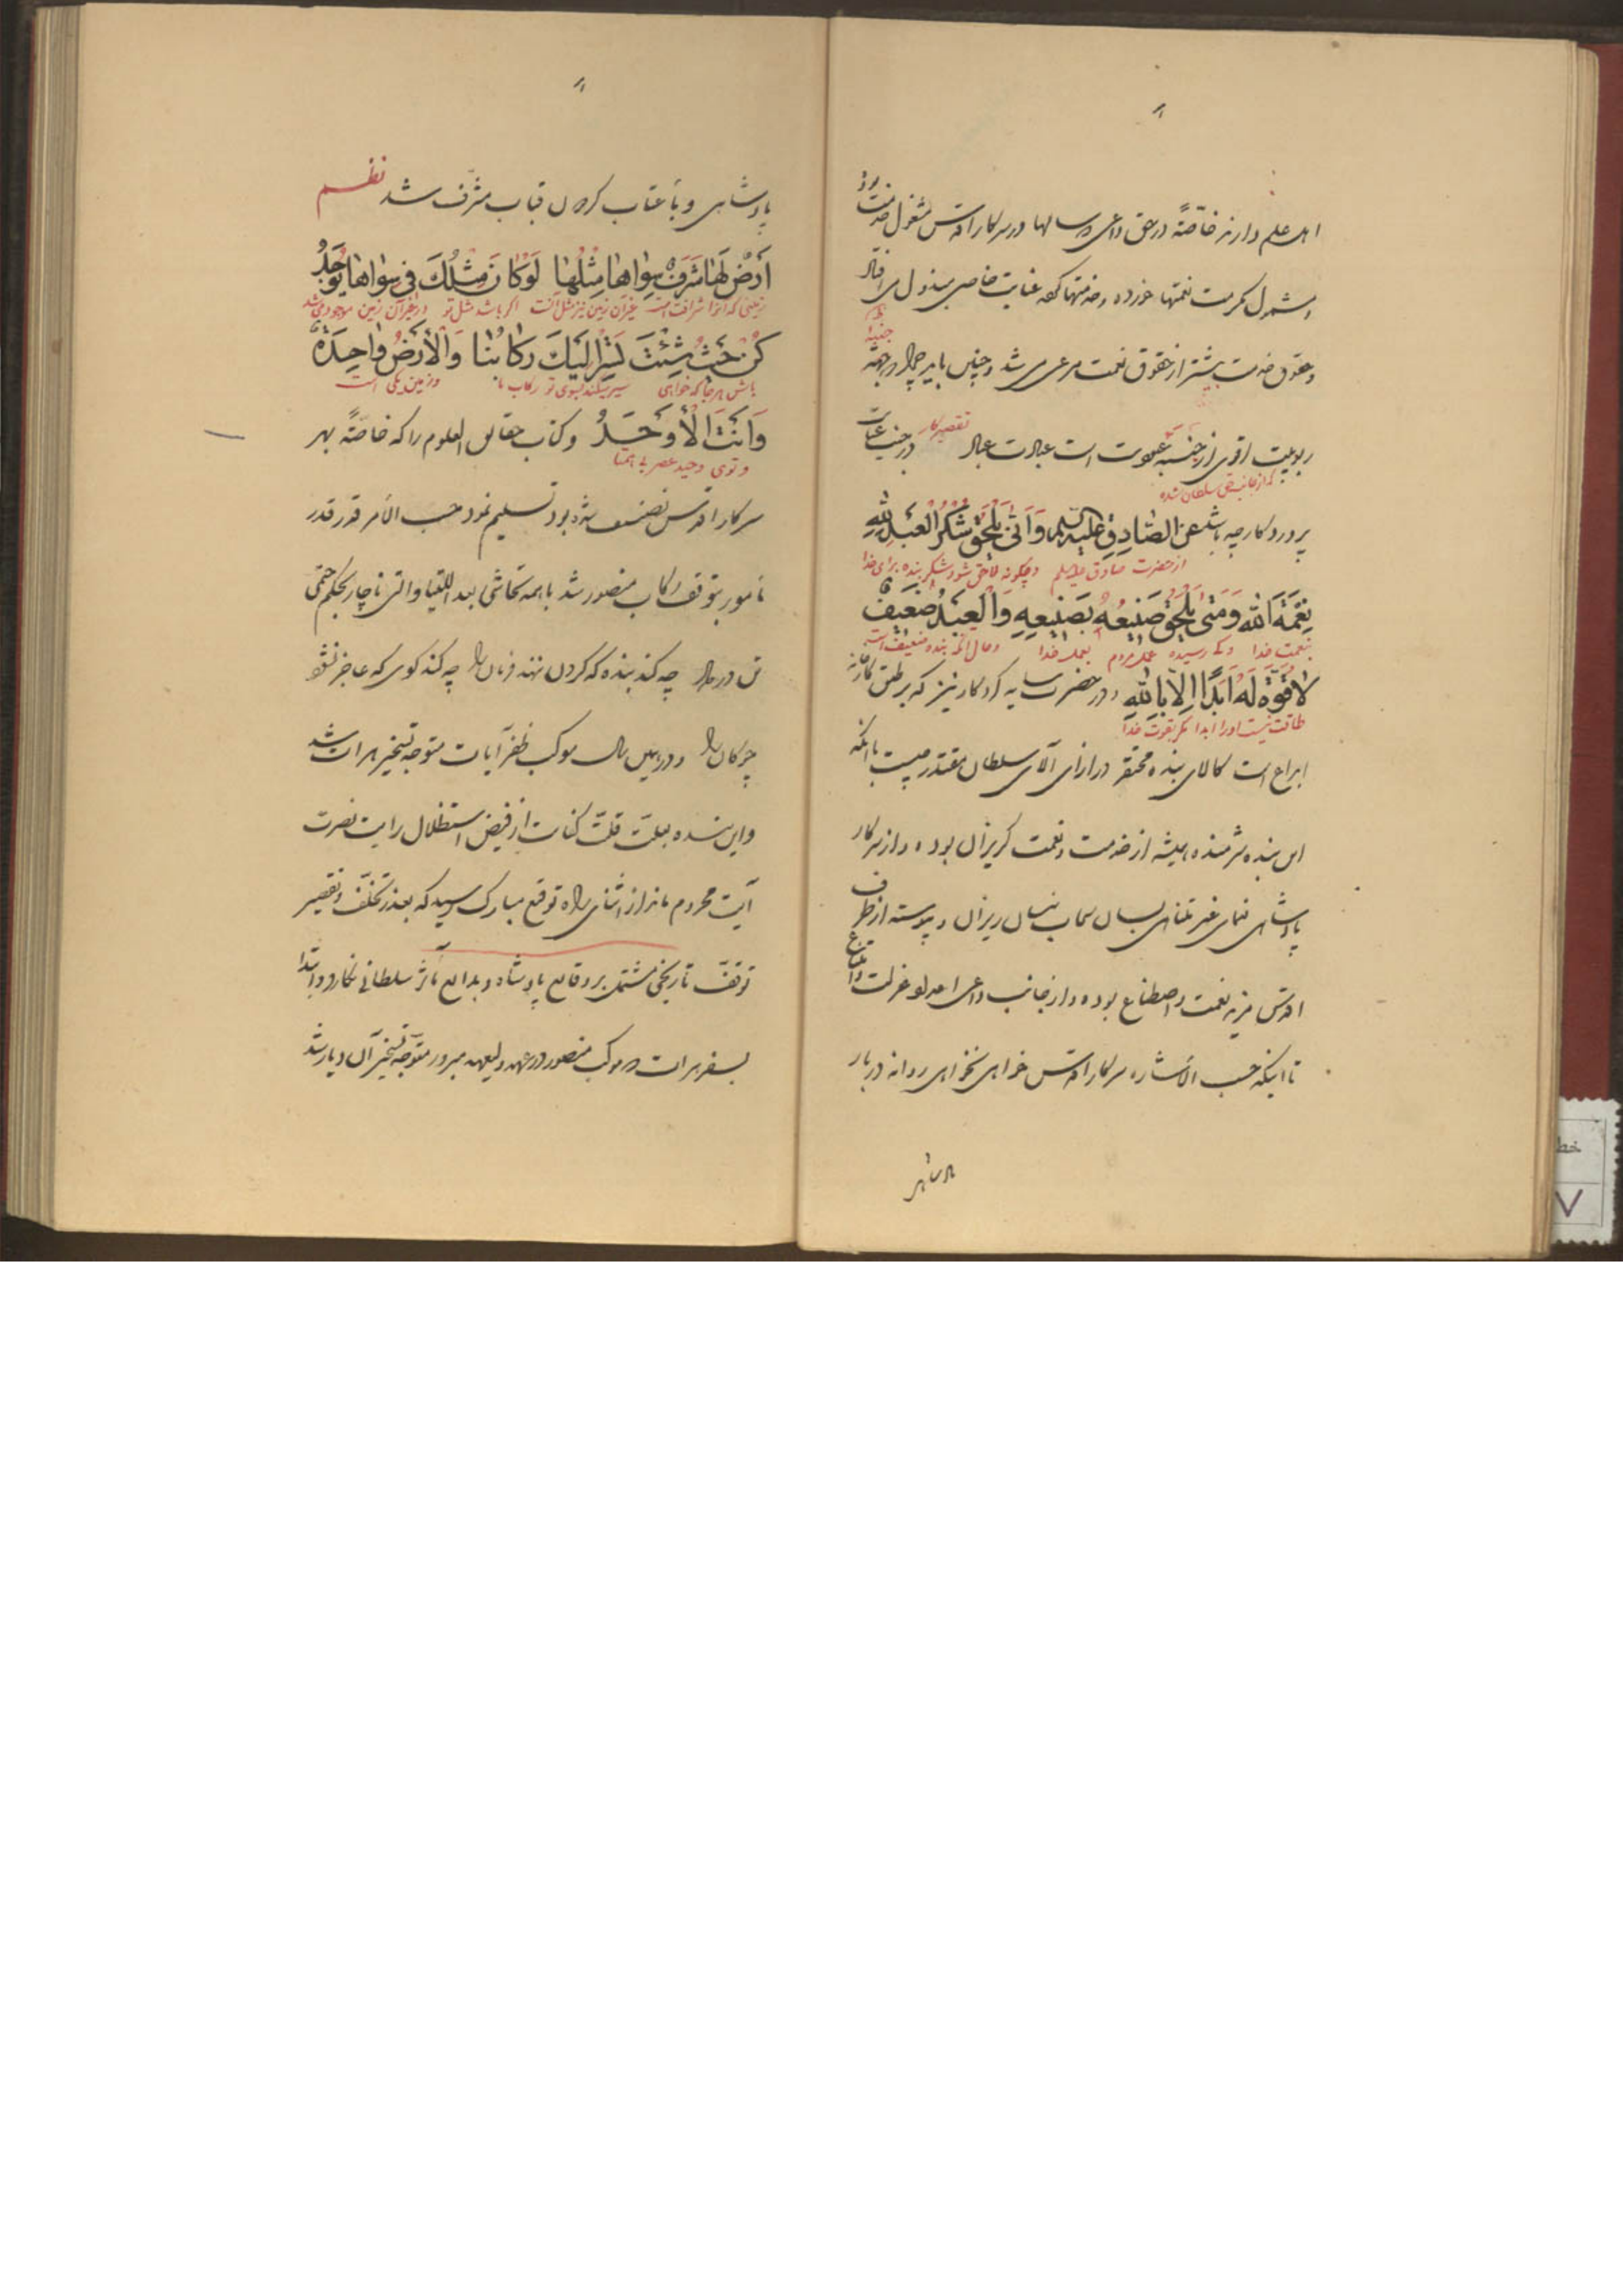 اهل علم دارند خاصّةً در حق داعی که سالها در سرکار اقدس مشغول خدمت بود
و مشمول مکرمت نعمتها خورده و خدمتها کرده عنایت خاصی مبذول می افتاد
و حقوق خدمت بیشتر از حقوق نعمت مرعی می شد و چنین باید چرا که در جهة
ربوبیت اقوی از جنبه عبودیت است عبادت عباد در جنب عنایت
تقصیر کار
که از جانب حق سلطان شده
پروردکار چه باشد عن الصّادق علیه السلام وَاَنّى يَلْحَقُ شُكْرُ الْعَبْدِ لِلّهِ
از حضرت صادق علیه السلام و چگونه لاحق شود شکر بنده برای خدا
نِعْمَةَ اللّهِ وَمَتى يَلْحَقُ صَنيعُهُ بِصَنيعِهِ وَالْعَبْدُ ضَعيفٌ
بنعمت خدا و کی رسیده عمل مردم بعمل خدا و حال آنکه بنده ضعیف است
لا قُوَّةَ لَهُ اَبَدًا اِلّا بِاللّهِ و در حضرت سایه کردکار نیز که بر طبق کارخانه
طاقت نیست او را ابدا مکر بقوت خدا
ابداع است کالای بنده محتقر در ازای آلای سلطان مقتدر چیست با آنکه
این بنده شرمنده همیشه از خدمت و نعمت کریزان بوده و از سرکار
پادشاهی نعمای غیر متناهی بسان سحاب نیسان ریزان و پیوسته از طرف
اقدس مزید نعمت و اصطناع بوده و از جانب داعی اعدلو عزلت و امتناع
تا اینکه حسب الاشاره سرکار اقدس خواهی نخواهی روانه دربار
پادشاهی و باعتاب کردون قباب مشرّف شد نظم
اَرْضٌ لَها شَرَفٌ سِواها مِثْلُها لَوْ كانَ مِثْلُكَ في سِواها يُوجَدُ
زمینی که آنرا شرافت است غیر آن زمین نیز مثل آنست اکر باشد مثل تو در غیر آن زمین موجود می شد
كُنْ حَيْثُ شِئْتَ تَسِرْ اِلَيْكَ رِكابُنا وَالْاَرْضُ واحِدَةٌ
باش هر جا که خواهی سیر میکند بسوی تو رکاب ما و زمین یکی است
وَاَنْتَ الْاَوْحَدُ و کتاب حقایق العلوم را که خاصّةً بهر
و توی وحید عصر بی همتا
سرکار اقدس تصنیف شده بود تسلیم نمود حسب الامر قدر قدر
مأمور بتوقف رکاب منصور شد با همه تحاشی بعد اللتیا والتی ناچار بحکم حتمی
تن در داد چه کند بنده که کردن ننهد فرمان را چه کند کوی که عاجز نشود
چوکان را و در همین سال موکب ظفر آیات متوجه تسخیر هرات شد
و این بنده بعلت قلّت مکنات از فیض استظلال رایت نصرت
آیت محروم ماند از اثنای راه توقیع مبارک رسید که بعذر تخلّف و تقصیر
توقف تاریخی مشتمل بر وقایع پادشاه و بدایع مآثر سلطانی نکارد و ابتدا
بسفر هرات که موکب منصور در عهد ولیعهد مبرور متوجّه تسخیر آن دیار شد